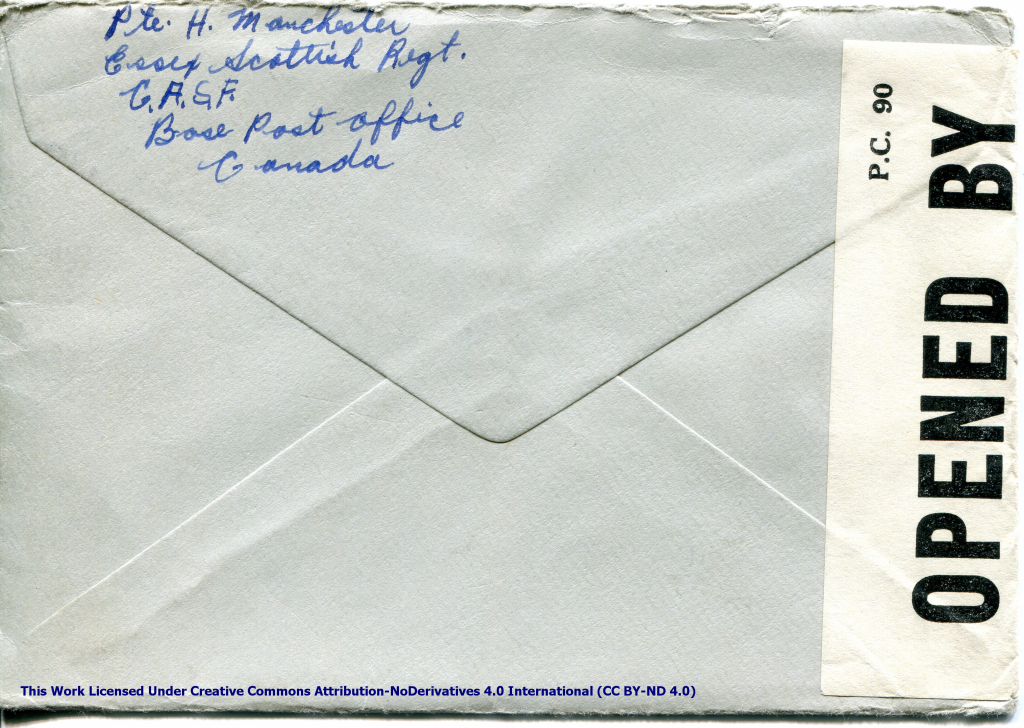 Pte. H. Manchester
Essex Scottish Regt.
C.A.S.F.
Base Post Office
Canada
P.C. 90
OPENED BY
This Work Licensed Under Creative Commons Attribution-NoDerivatives 4.0 International (CC BY-ND 4.0)